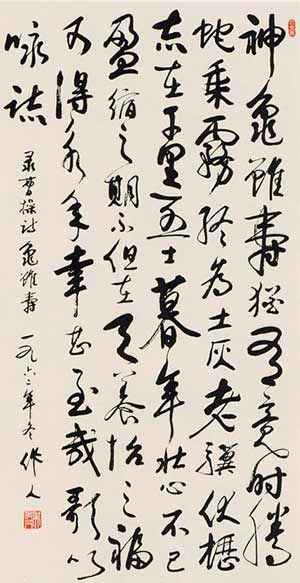 神龜雖壽猶有竟时騰
蛇乘霧終為土灰老驥伏櫪
志在千里烈士暮年壮心不已
盈縮之期不但在天養怡之福
可得永年幸甚至哉歌以
咏誌
录曹操詩龜雖壽 一九六二年冬 作人